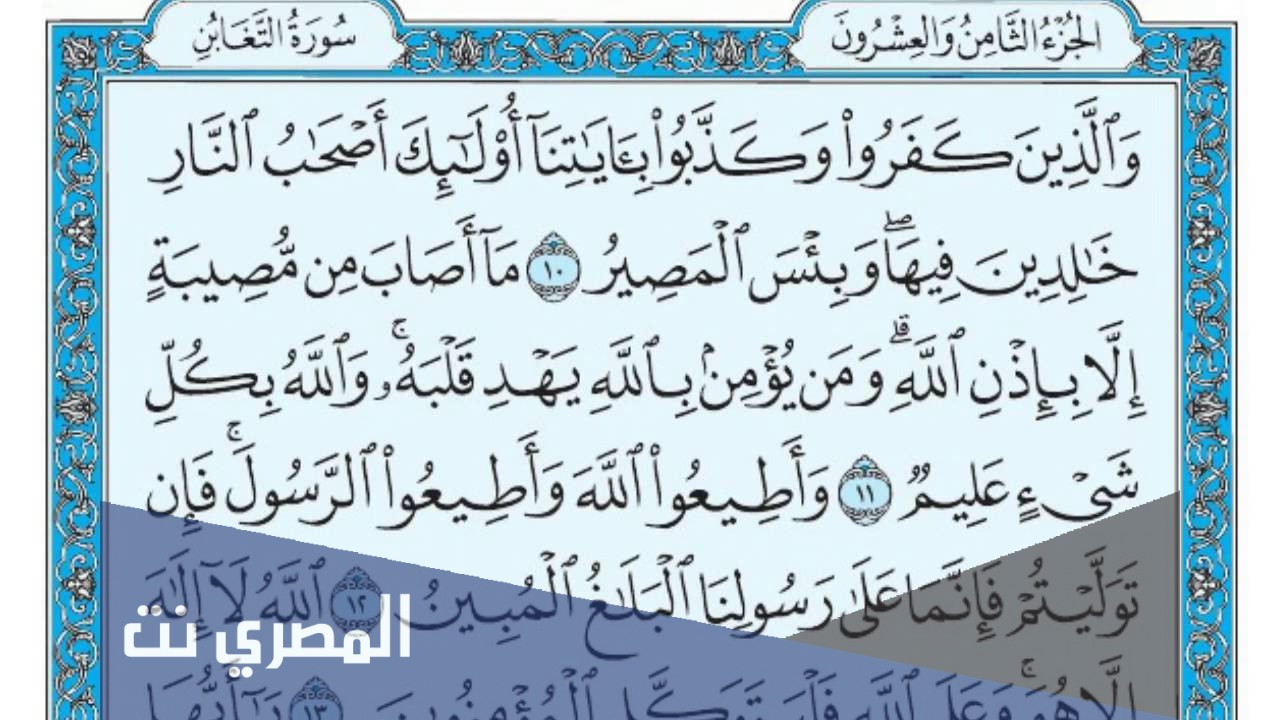 الجُزْءُ الثَّامِنُ وَالعِشْرُونَ
سُورَةُ التَّغَابُنِ
وَٱلَّذِينَ كَفَرُوا۟ وَكَذَّبُوا۟ بِـَٔايَـٰتِنَآ أُو۟لَـٰٓئِكَ أَصْحَـٰبُ ٱلنَّارِ
خَـٰلِدِينَ فِيهَا ۖ وَبِئْسَ ٱلْمَصِيرُ ١٠ مَآ أَصَابَ مِن مُّصِيبَةٍ
إِلَّا بِإِذْنِ ٱللَّهِ ۗ وَمَن يُؤْمِنۢ بِٱللَّهِ يَهْدِ قَلْبَهُۥ ۚ وَٱللَّهُ بِكُلِّ
شَىْءٍ عَلِيمٌ ١١ وَأَطِيعُوا۟ ٱللَّهَ وَأَطِيعُوا۟ ٱلرَّسُولَ ۚ فَإِن
تَوَلَّيْتُمْ فَإِنَّمَا عَلَىٰ رَسُولِنَا ٱلْبَلَـٰغُ ٱلْمُبِينُ ١٢ ٱللَّهُ لَآ إِلَـٰهَ
إِلَّا هُوَ ۚ وَعَلَى ٱللَّهِ فَلْيَتَوَكَّلِ ٱلْمُؤْمِنُونَ ١٣ يَـٰٓأَيُّهَا
المصري نت